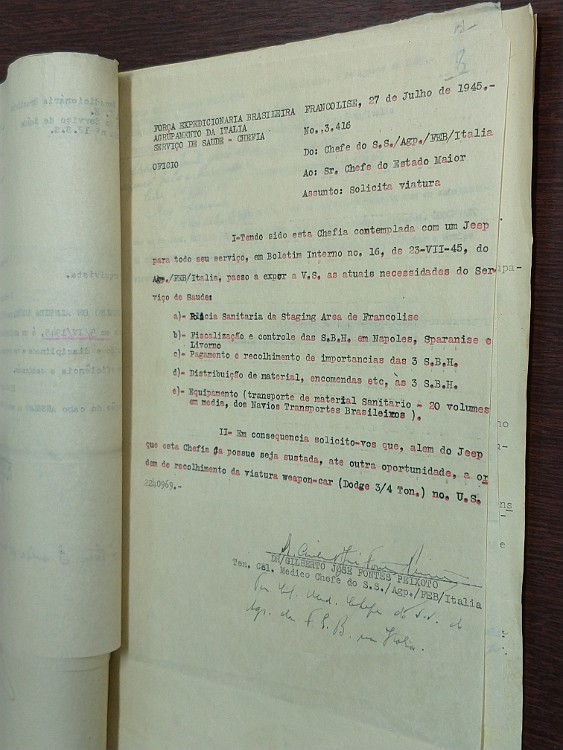 FORÇA EXPEDICIONARIA BRASILEIRA
AGRUPAMENTO DA ITALIA
SERVIÇO DE SAUDE - CHEFIA
OFICIO
FRANCOLISE, 27 de Julho de 1945.-
No.,3.416
Do: Chefe do S.S./Agp./FEB/Italia
Ao: Sr. Chefe do Estado Maior
Assunto: Solicita viatura
I-Tendo sido esta Chefia contemplada com um Jeep
para todo seu serviço, em Boletim Interno no. 16, de 23-VII-45, do
Agp./FEB/Italia, passo a expor a V.S. as atuais necessidades do Ser
viço de Saude:
a)- Policia Sanitaria da Staging Area de Francolise
b)- Fiscalização e controle das S.B.H. em Napoles, Sparanise e
Livorno
c)- Pagamento e recolhimento de importancias das 3 S.B.H.
d)- Distribuição de material, encomendas etc, às 3 S.B.H.
e)- Equipamento (transporte de material Sanitario - 20 volumes
em media, dos Navios Transportes Brasileiros ).
II- Em consequencia solicito-vos que, alem do Jeep
que esta Chefia já possue seja sustada, ate outra oportunidade, a or
dem de recolhimento da viatura weapon-car (Dodge 3/4 Ton.) no. U.S.
2240969.-
DR/GILBERTO JOSE FONTES PEIXOTO
Ten. Cel. Medico Chefe do S.S./Agp./FEB/Italia
Chefe do S.S. do
Agr. da F.E.B. na Italia.